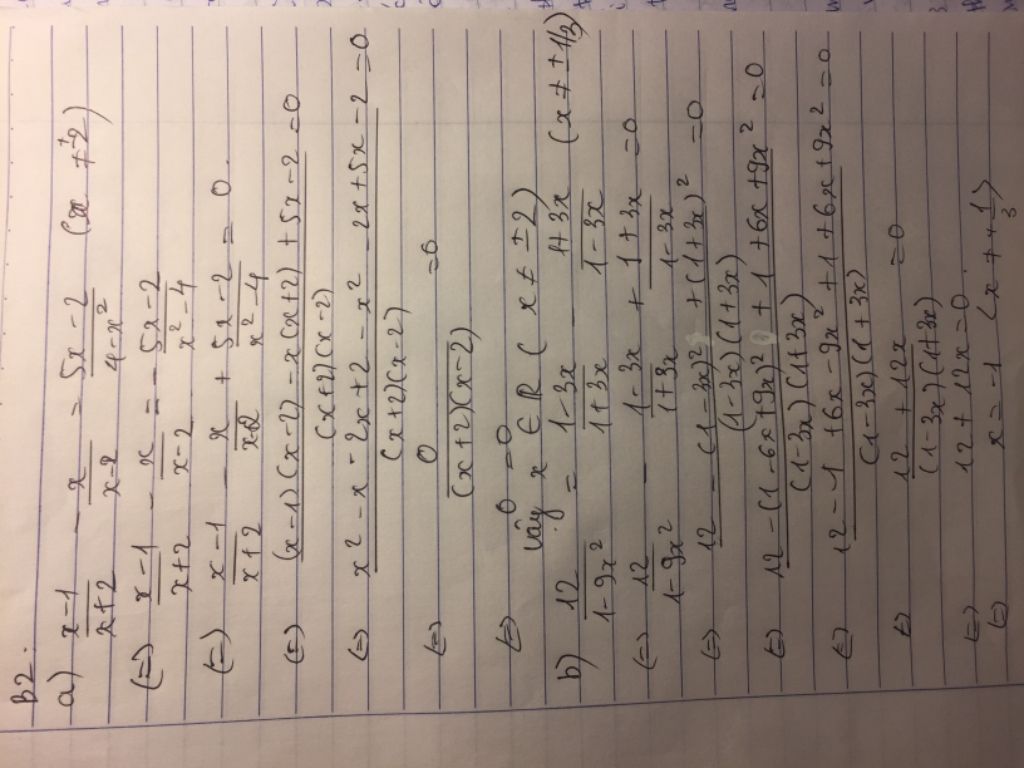 B2.
a) x-1/x+2 - x/x-2 = 5x-2/4-x² (x ≠ ±2)
(=) x-1/x+2 - x/x-2 = - 5x-2/x²-4
(=) x-1/x+2 - x/x-2 + 5x-2/x²-4 = 0.
(=) (x-1)(x-2) - x(x+2) + 5x-2/(x+2)(x-2) = 0
(=) x² - x - 2x + 2 - x² - 2x + 5x - 2/(x+2)(x-2) = 0
(=) 0/(x+2)(x-2) = 0
(=) 0 = 0
vậy x ∈ R ( x ≠ ±2)
b) 12/1-9x² = 1-3x/1+3x - 1+3x/1-3x (x ≠ ± 1/3)
(=) 12/1-9x² - 1-3x/1+3x + 1+3x/1-3x = 0
(=) 12 - (1-3x)² + (1+3x)²/(1-3x)(1+3x) = 0
(=) 12 - (1-6x+9x)² + 1 + 6x + 9x²/(1-3x)(1+3x) = 0
(=) 12 - 1 + 6x - 9x² + 1 + 6x + 9x²/(1-3x)(1+3x) = 0
(=) 12 + 12x/(1-3x)(1+3x) = 0
(=) 12 + 12x = 0.
(=) x = -1 (x ≠ ± 1/3)